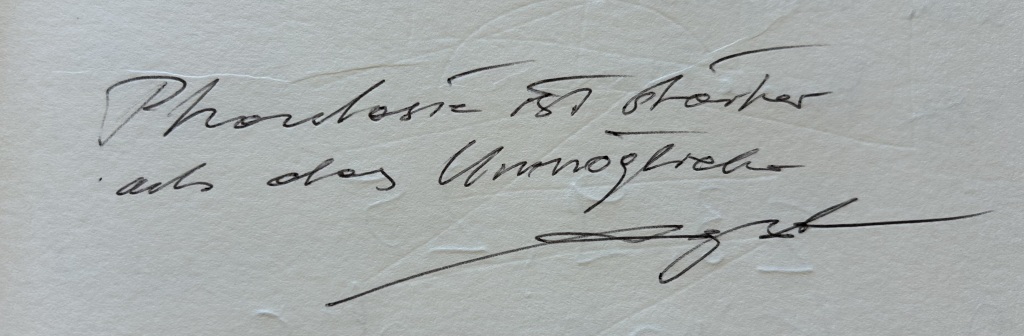 Phantasie ist stärker
als das Unmögliche